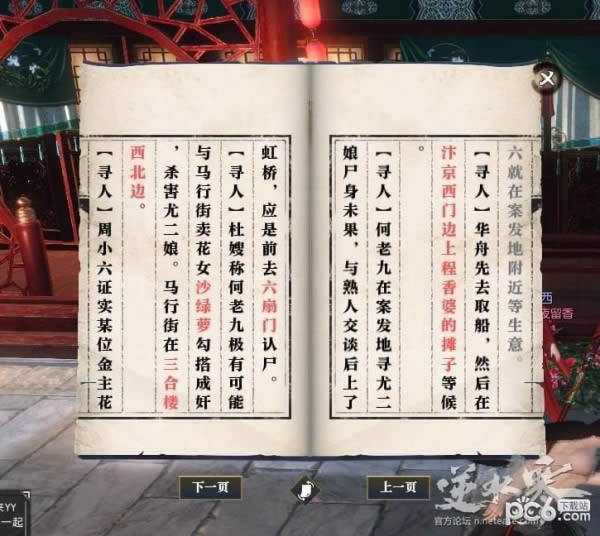 六就在案发地附近等生意。
【寻人】华舟先去取船，然后在
汴京西门边上程香婆的摊子等候
。
【寻人】何老九在案发地寻尤二
娘尸身未果，与熟人交谈后上了
虹桥，应是前去六扇门认尸。
【寻人】杜嫂称何老九极有可能
与马行街卖花女沙绿萝勾搭成奸
，杀害尤二娘。马行街在三合楼
西北边。
【寻人】周小六证实某位金主花
下一页
上一页
西
夜留香
YY
一起
逆水寒
官方论坛 n.netease.com
pc6下载站
.com